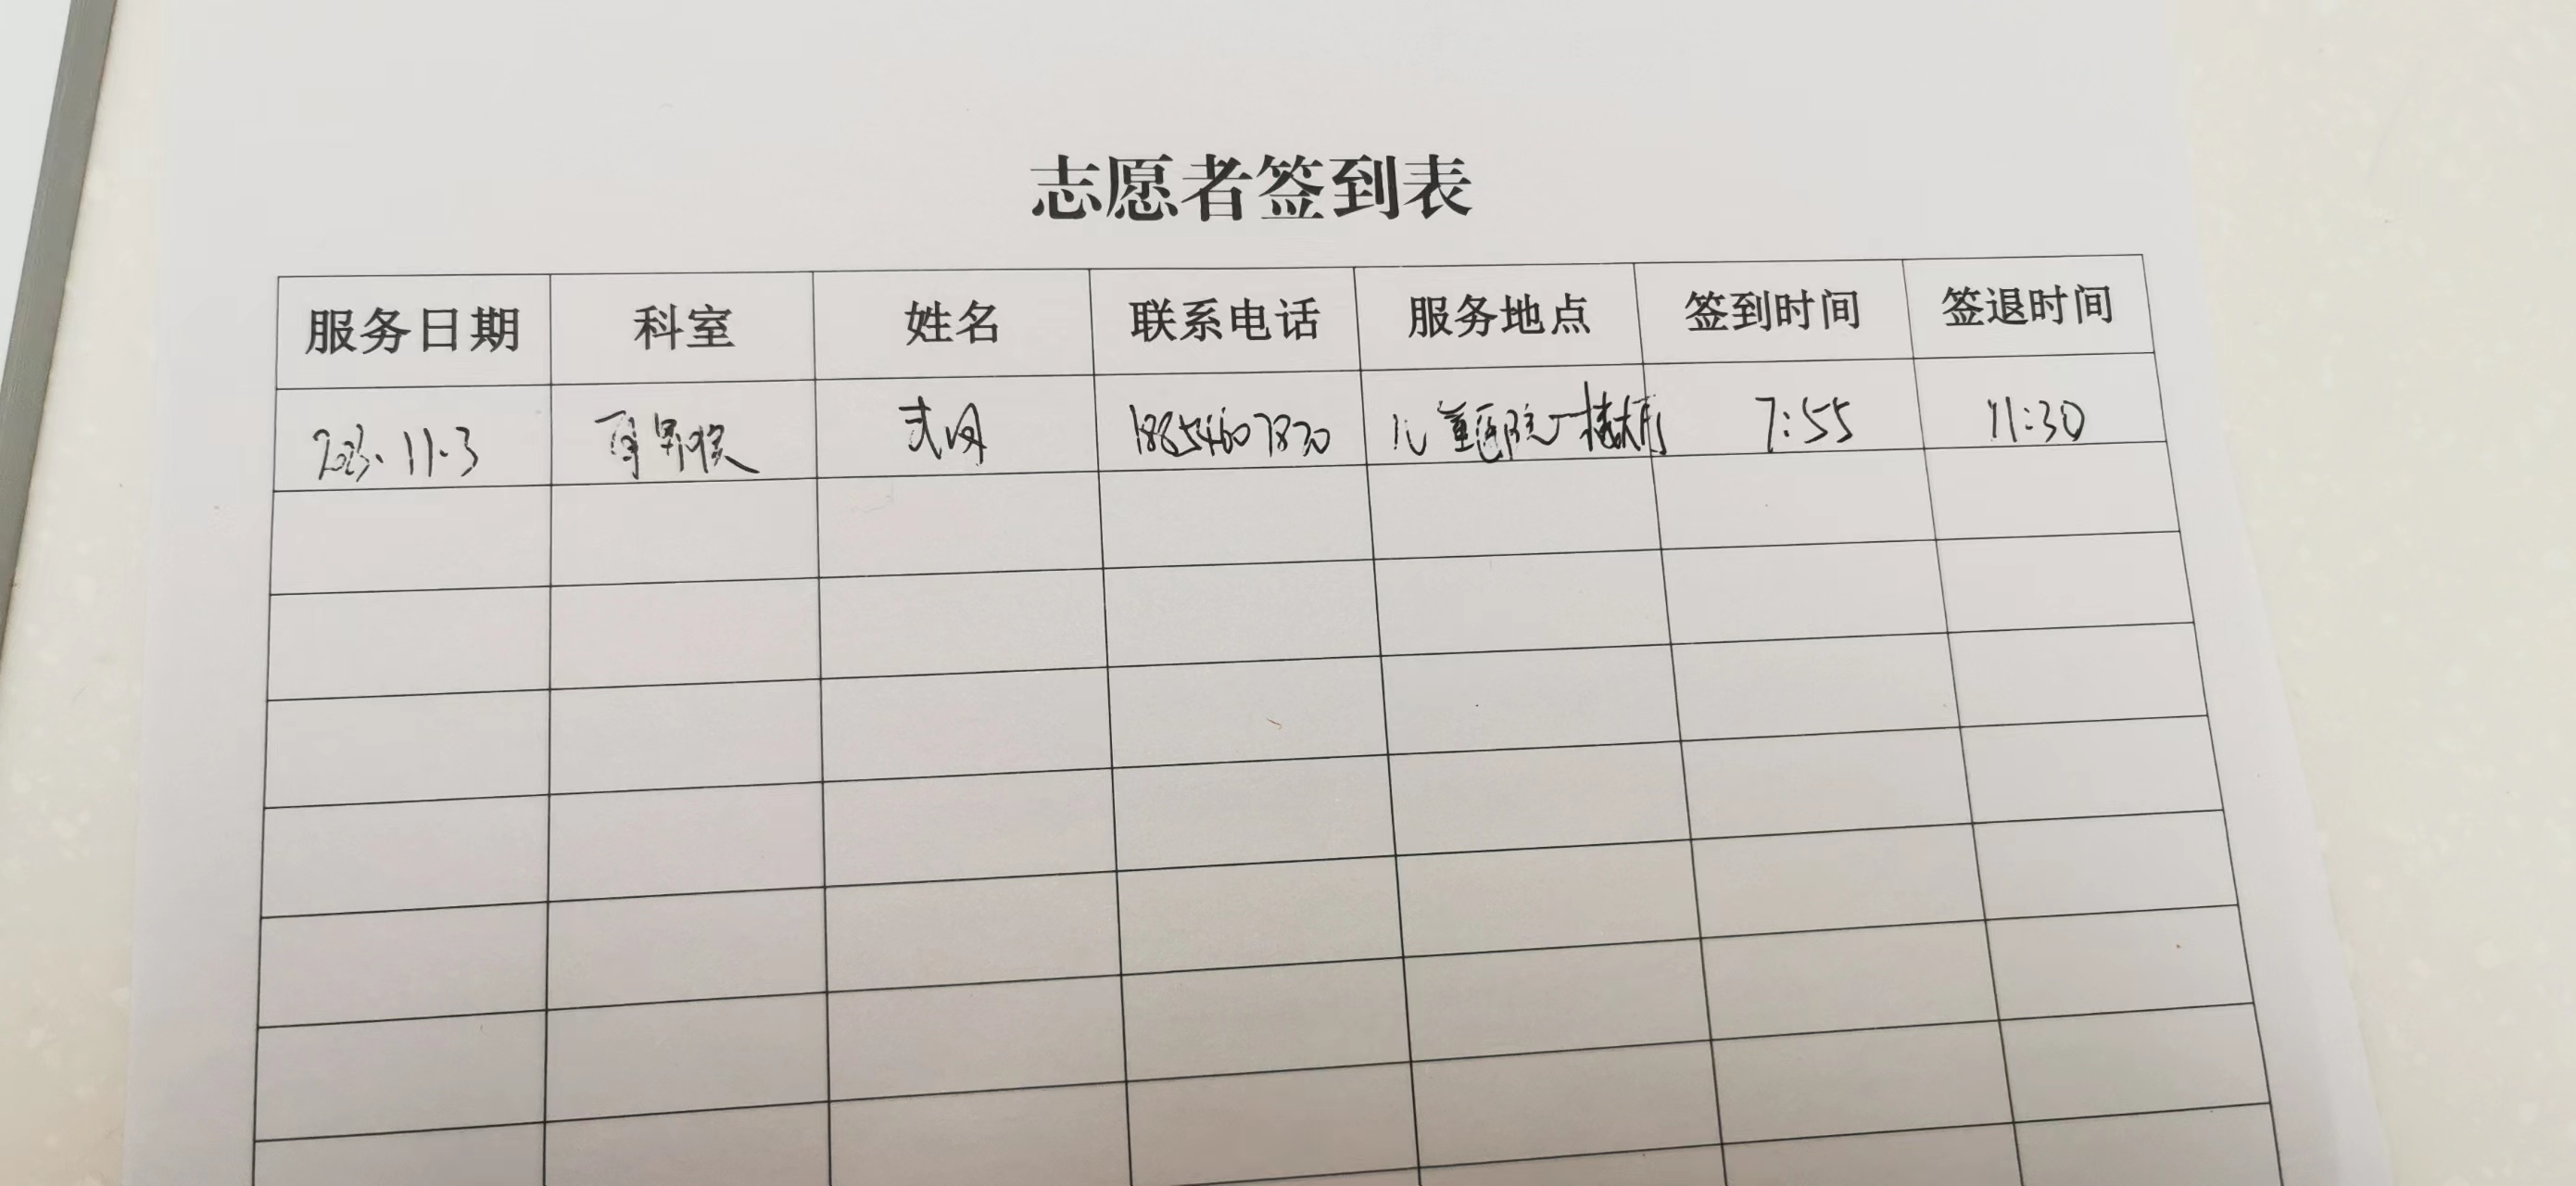 志愿者签到表
服务日期 科室 姓名 联系电话 服务地点 签到时间 签退时间
2023.11.3 18854607830 儿童医院一楼大厅 7:55 11:30